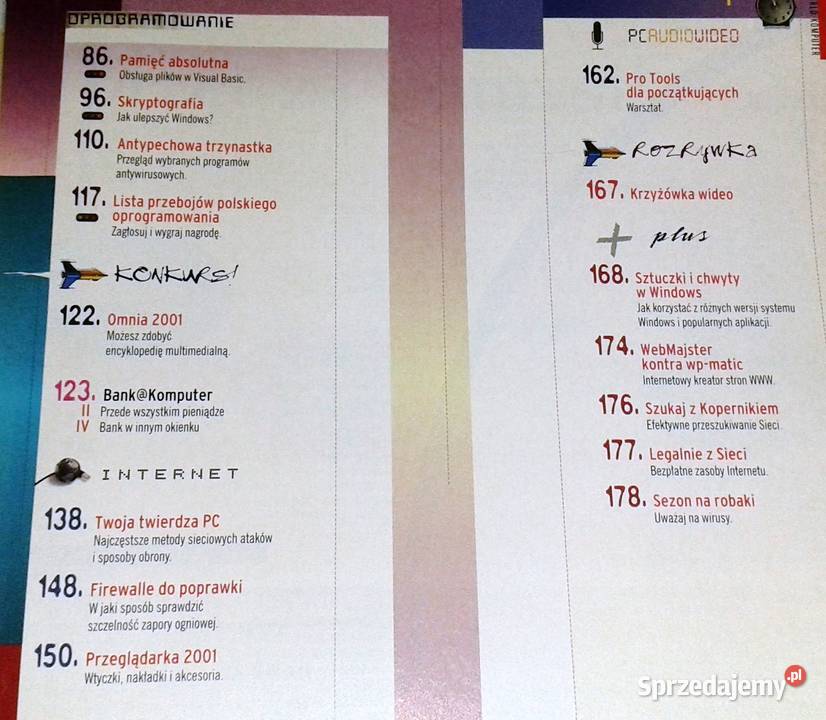 OPROGRAMOWANIE
86. Pamięć absolutna
Obsługa plików w Visual Basic.
96. Skryptografia
Jak ulepszyć Windows?
110. Antypechowa trzynastka
Przegląd wybranych programów
antywirusowych.
117. Lista przebojów polskiego
oprogramowania
Zagłosuj i wygraj nagrodę.
KONKURS!
122. Omnia 2001
Możesz zdobyć
encyklopedię multimedialną.
123. Bank@Komputer
II Przede wszystkim pieniądze
IV Bank w innym okienku
INTERNET
138. Twoja twierdza PC
Najczęstsze metody sieciowych ataków
i sposoby obrony.
148. Firewalle do poprawki
W jaki sposób sprawdzić
szczelność zapory ogniowej.
150. Przeglądarka 2001
Wtyczki, nakładki i akcesoria.
PCAUDIOWIDEO
162. Pro Tools
dla początkujących
Warsztat.
ROZRYWKA
167. Krzyżówka wideo
+ plus
168. Sztuczki i chwyty
w Windows
Jak korzystać z różnych wersji systemu
Windows i popularnych aplikacji.
174. WebMajster
kontra wp-matic
Internetowy kreator stron WWW.
176. Szukaj z Kopernikiem
Efektywne przeszukiwanie Sieci.
177. Legalnie z Sieci
Bezpłatne zasoby Internetu.
178. Sezon na robaki
Uważaj na wirusy.
KOMPUTER
Sprzedajemy.pl